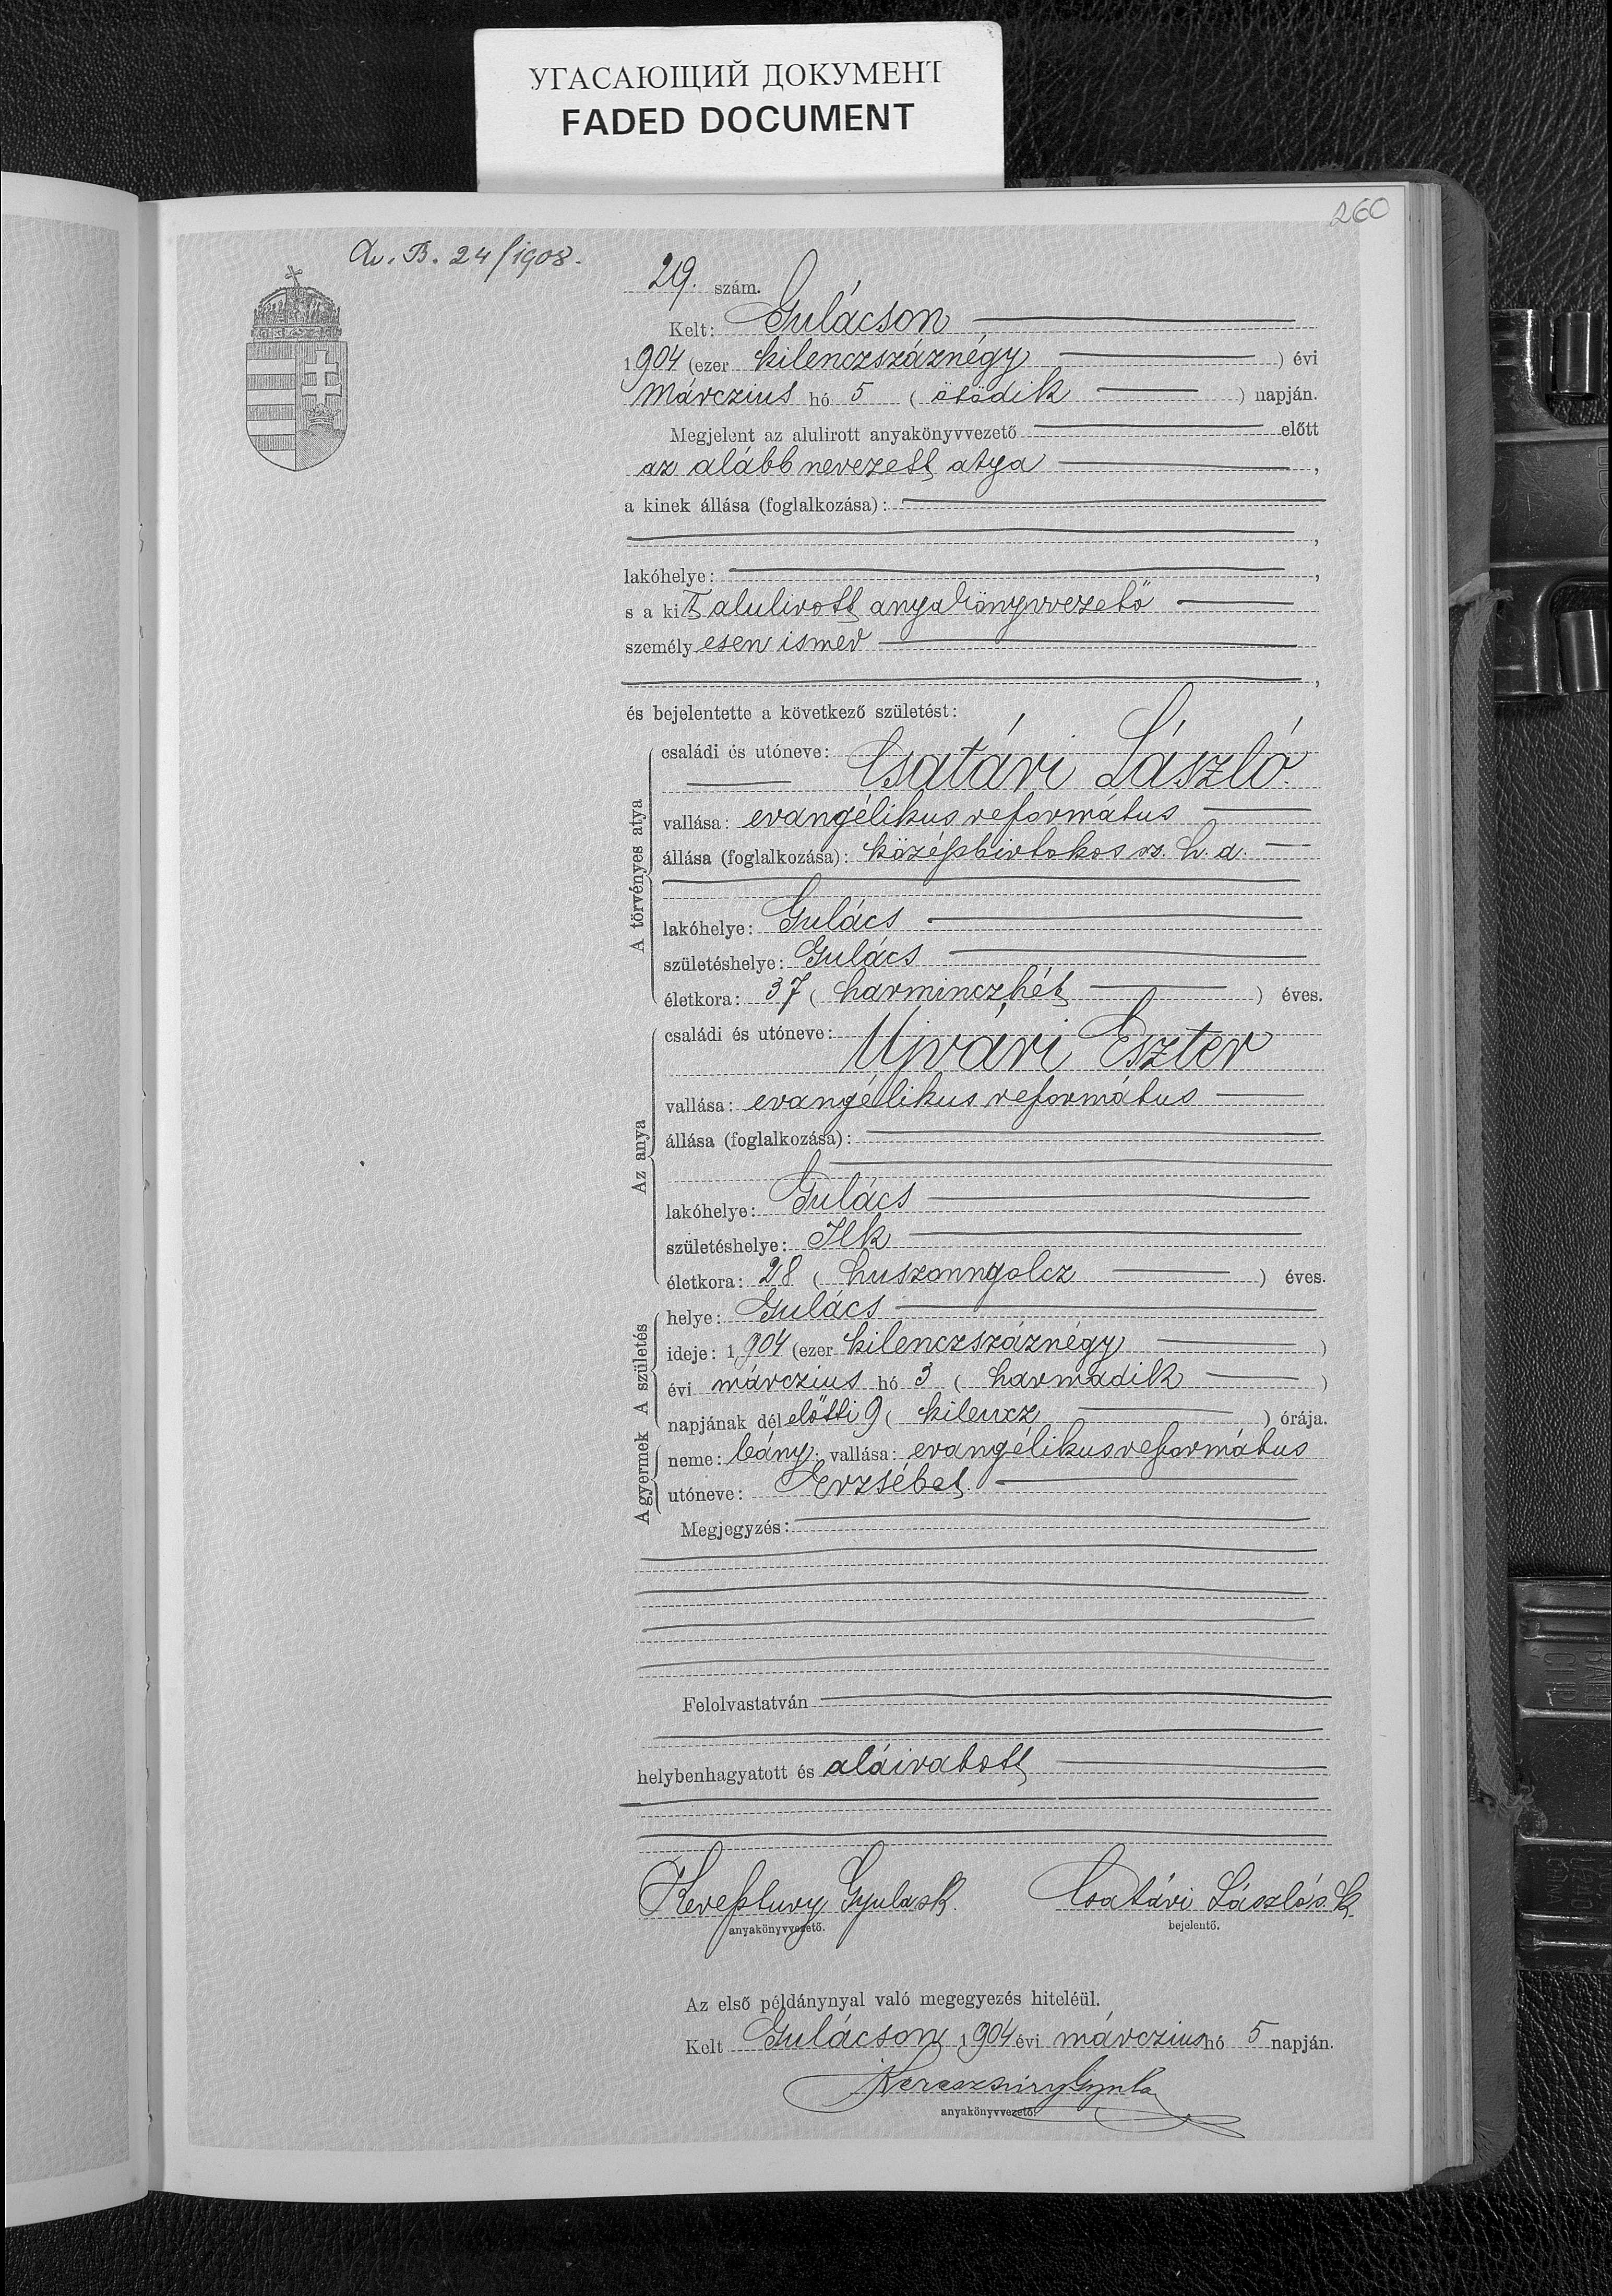 УГАСАЮЩИЙ ДОКУМЕНТ
FADED DOCUMENT
260
B. 24/1908.
29. szám.
Kelt: Gulácson
1904 (ezer kilenczszáznégy) évi
márczius hó 5 (ötödik) napján.
Megjelent az alulirott anyakönyvvezető előtt
az alább nevezett atya,
a kinek állása (foglalkozása):
,
lakóhelye: ,
s a kit alulirott anyakönyvvezető
személyesen ismer
,
és bejelentette a következő születést:
A törvényes atya
családi és utóneve: Csatári László.
vallása: evangélikus református
állása (foglalkozása): középbirtokos sz. h. a.
lakóhelye: Gulács
születéshelye: Gulács
életkora: 37 (harminczhét) éves.
Az anya
családi és utóneve: Ujvári Eszter
vallása: evangélikus református
állása (foglalkozása):
lakóhelye: Gulács
születéshelye: Ilk
életkora: 28 (huszonngolcz) éves.
A születés
helye: Gulács
ideje: 1904 (ezer kilenczszáznégy)
évi márczius hó 3 (harmadik)
napjának délelőtti 9 (kilencz) órája.
A gyermek
neme: leány; vallása: evangélikus református
utóneve: Erzsébet.
Megjegyzés:
Felolvastatván
helybenhagyatott és aláiratott
Kereſztury Gyula sk. Csatári László s. k.
anyakönyvvezető. bejelentő.
Az első példánynyal való megegyezés hiteléül.
Kelt Gulácson 1904 évi márczius hó 5 napján.
Keresztúry Gyula
anyakönyvvezető.